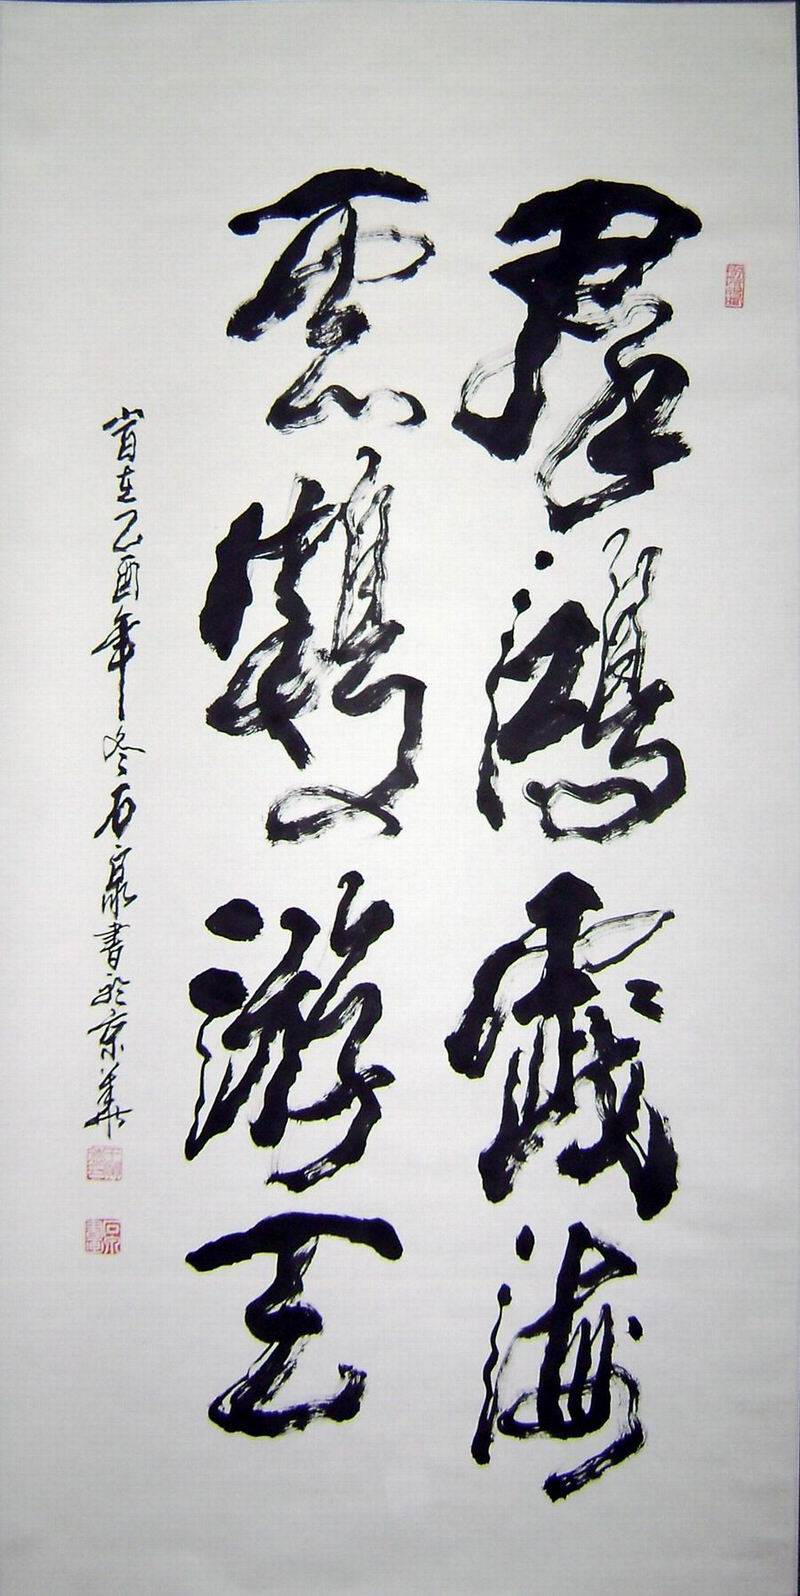 群鴻戲海
雲鶴游天
時在乙酉年冬石泉書於京華